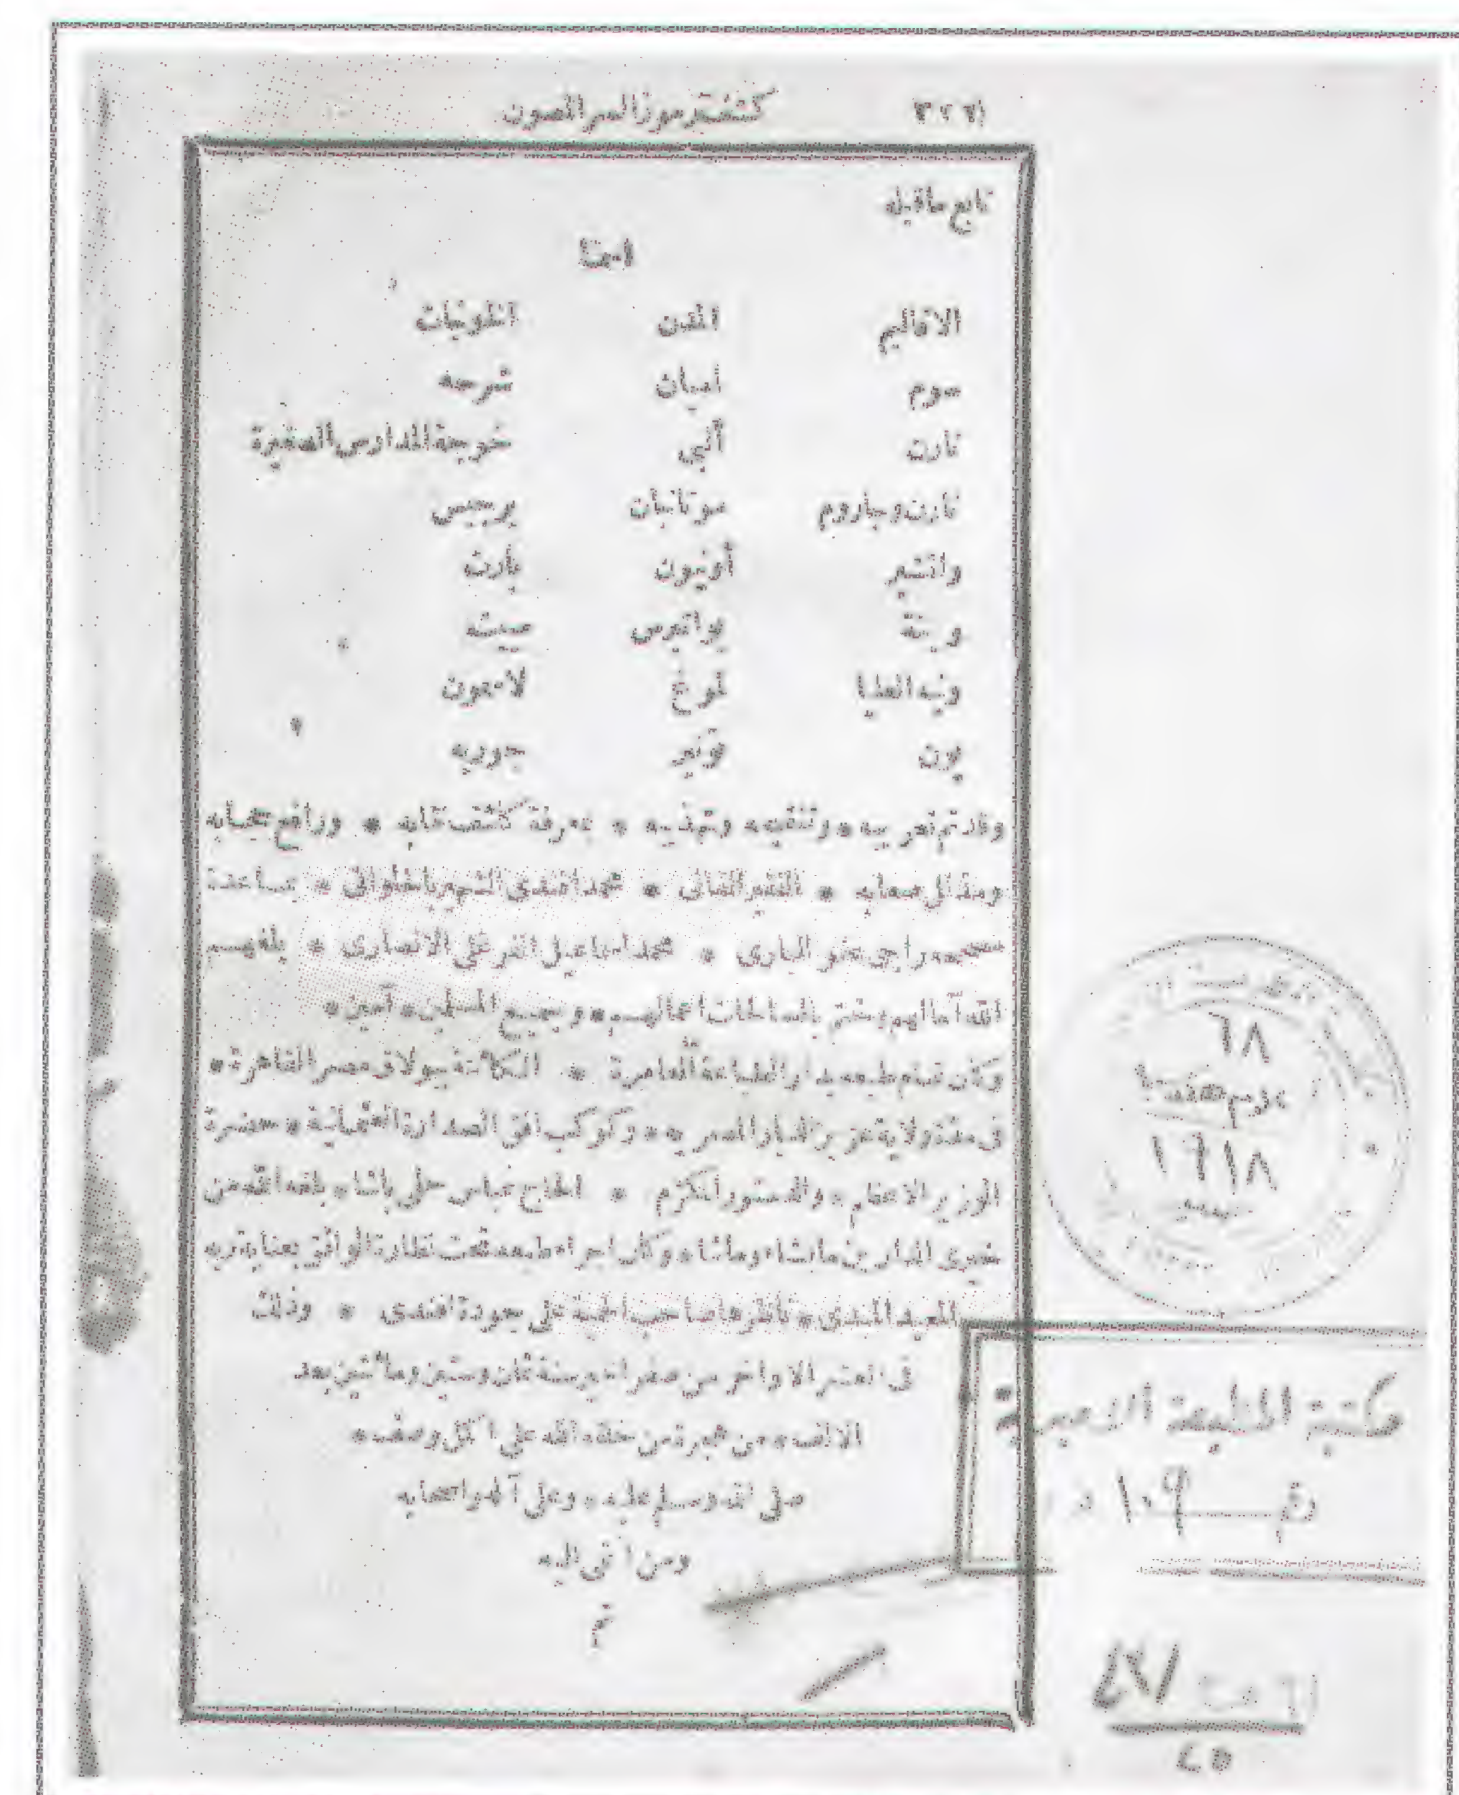 كشف رموز السر المصون ٣٢٦
تابع ماقبله
ايضا
الاقاليم المدن الخوجات
سوم اميان شرحه
تارت آلبي خوجة المدارس الصغيرة
تارت وجاروم مونتابان برجيس
وانتشير أونيون بارت
وينة بواتيرس
وينه العليا لموغ لامعون
يون تونير جوريه
وقد تم تعريبه * وتنقيحه وتهذيبه * بمعرفة كاشف نقابه * ورافع حجابه
ومذلل صعابه * الفقير الفاني * محمد افندي الشهير بالحلواني * بمساعدة
مصححه راجي عفو الباري * محمد اسماعيل الفرغلي الانصاري * بلغهم
الله آمالهم وختم بالصالحات اعمالهم * وجميع المسلمين * آمين *
وكان تمام طبعه بدار الطباعة العامرة * الكائنة ببولاق مصر القاهرة *
في مدة ولاية عزيز الديار المصريه * وكوكب افق الصدارة العثمانية * حضرة
الوزير الاعظم * والدستور المكرم * الحاج عباس حلمي باشا * بلغه الله من
خيري الدارين ما يشاء وما شا * وكان اجراء طبعه تحت نظارة الواثق بعناية ربه
المعيد المبدي * ناظرها صاحب الهمة علي جودة افندي * وذلك
في العشر الاواخر من صفر الخير سنة ثمان وستين ومائتين بعد
الالف * من هجرة من خلقه الله على اكمل وصف *
صلى الله وسلم عليه * وعلى آله واصحابه
ومن انتمى اليه
تم
٦٨
علوم
١٢٦٨
مكتبة المطبعة الاميرية
١٠٩
٤٢٧
٤٥